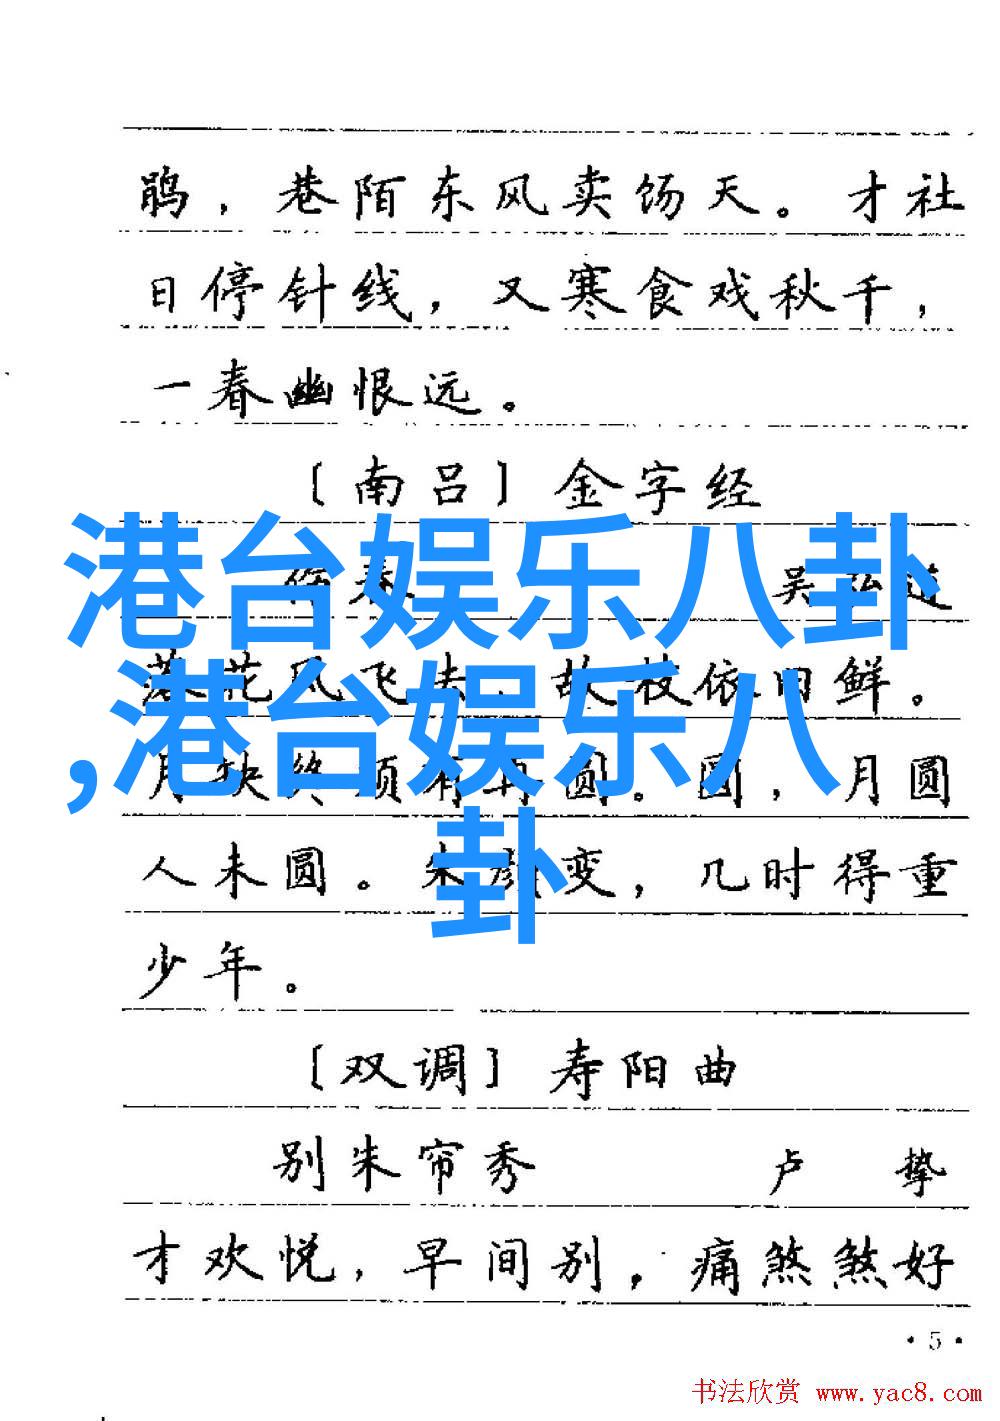 鹃，巷陌东风卖饧天。才社
日停针线，又寒食戏秋千，
一春幽恨远。
〔南吕〕金字经
伤春 吴弘道
落花风飞去，故枝依旧鲜。
月缺终须有再圆。圆，月圆
人未圆。朱颜变，几时得重
少年。
〔双调〕寿阳曲
别朱帘秀 卢挚
才欢悦，早间别，痛煞煞好
·5·
港台娱乐八卦
,港台娱乐八
卦
书法欣赏 www.yac8.com